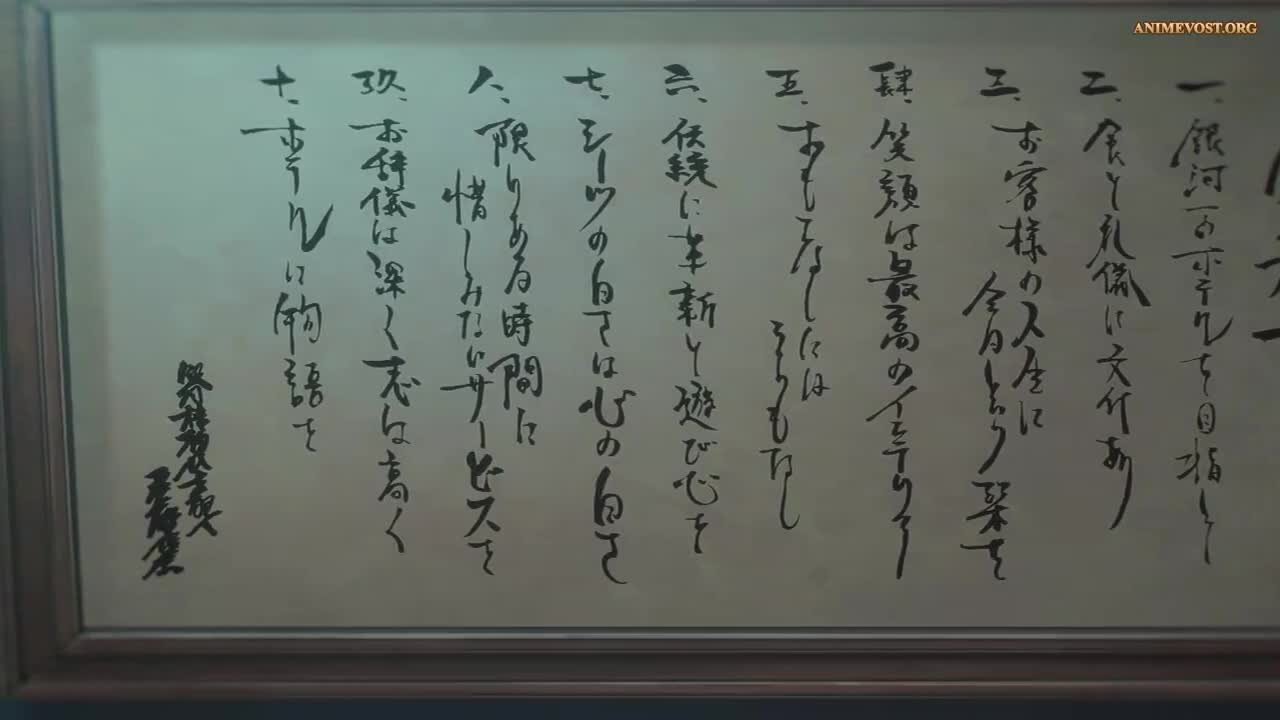 ANIMEVOST.ORG
一、銀河一のホテルを目指して
二、と礼儀に
三、お客様の人生に
今日という栞を
肆、笑顔は最高のインテリア
五、おもてなしには
うらもなし
六、伝統に革新と遊び心を
七、シーツの白さは心の白さ
八、限りある時間に
惜しみないサービスを
玖、お辞儀は深く志は高く
十、ホテルに物語を